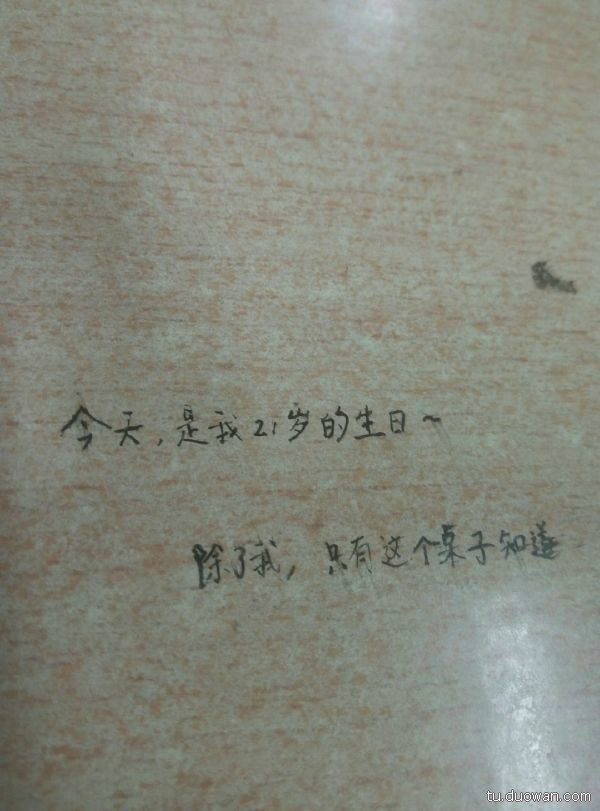 今天,是我21岁的生日~
除了我,只有这个桌子知道
tu.duowan.com